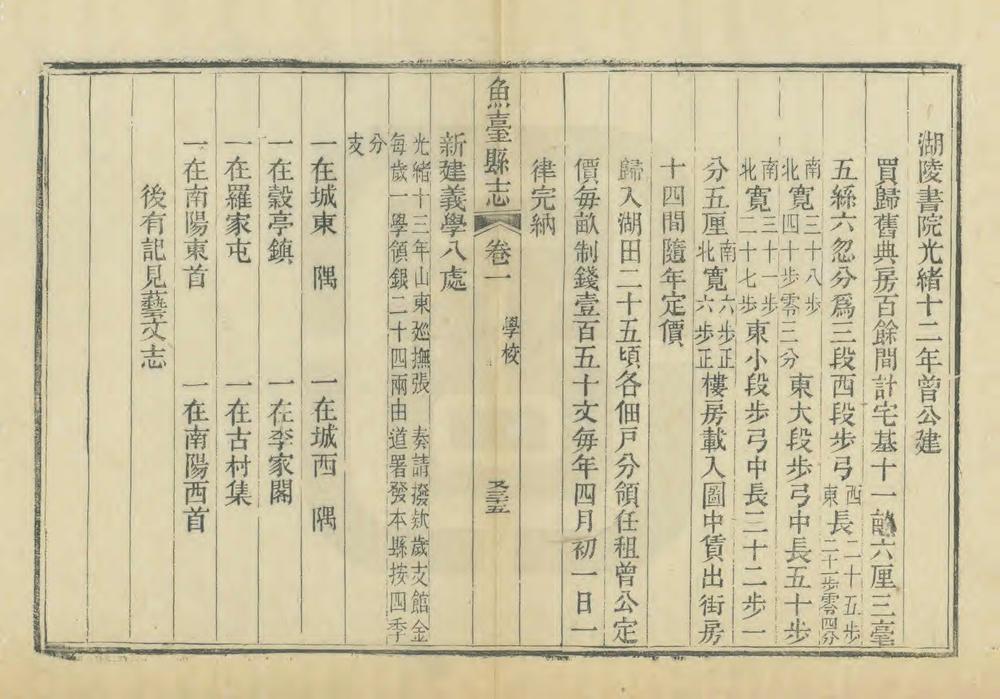 湖陵書院光緒十二年曾公建
買歸舊典房百餘間計宅基十一畝六厘三毫
五絲六忽分爲三段西段步弓西東長二十五步二十一步零四分
南北寬三十八步四十步零三分東大段步弓中長五十步
南北寬三十一步二十七步東小段步弓中長三十二步一
分五厘南北寬六步正六步正樓房載入圖中賃出街房
十四間隨年定價
歸入湖田二十五頃各佃戶分領任租曾公定
價每畝制錢壹百五十文每年四月初一日一
律完納
魚臺縣志 卷一 學校 又三十五
新建義學八處
光緒十三年山東巡撫張 奏請撥欵歲支館金
每歲一學領銀二十四兩由道署發本縣按四季
分
支
一在城東隅 一在城西隅
一在穀亭鎮 一在李家閣
一在羅家屯 一在古村集
一在南陽東首 一在南陽西首
後有記見藝文志